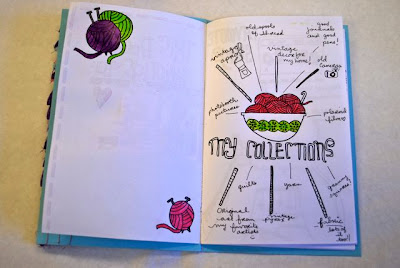 old spools
of thread
good
journals
and good
pens!
vintage
aprons
vintage
decor for
my home!
old
cameras
photobooth
pictures
polaroid
films
MY COLLECTIONS
quilts
yarn
granny
squares!
original
art from
my favorite
artists
vintage
pyrex
fabric
lots of
it
too!!